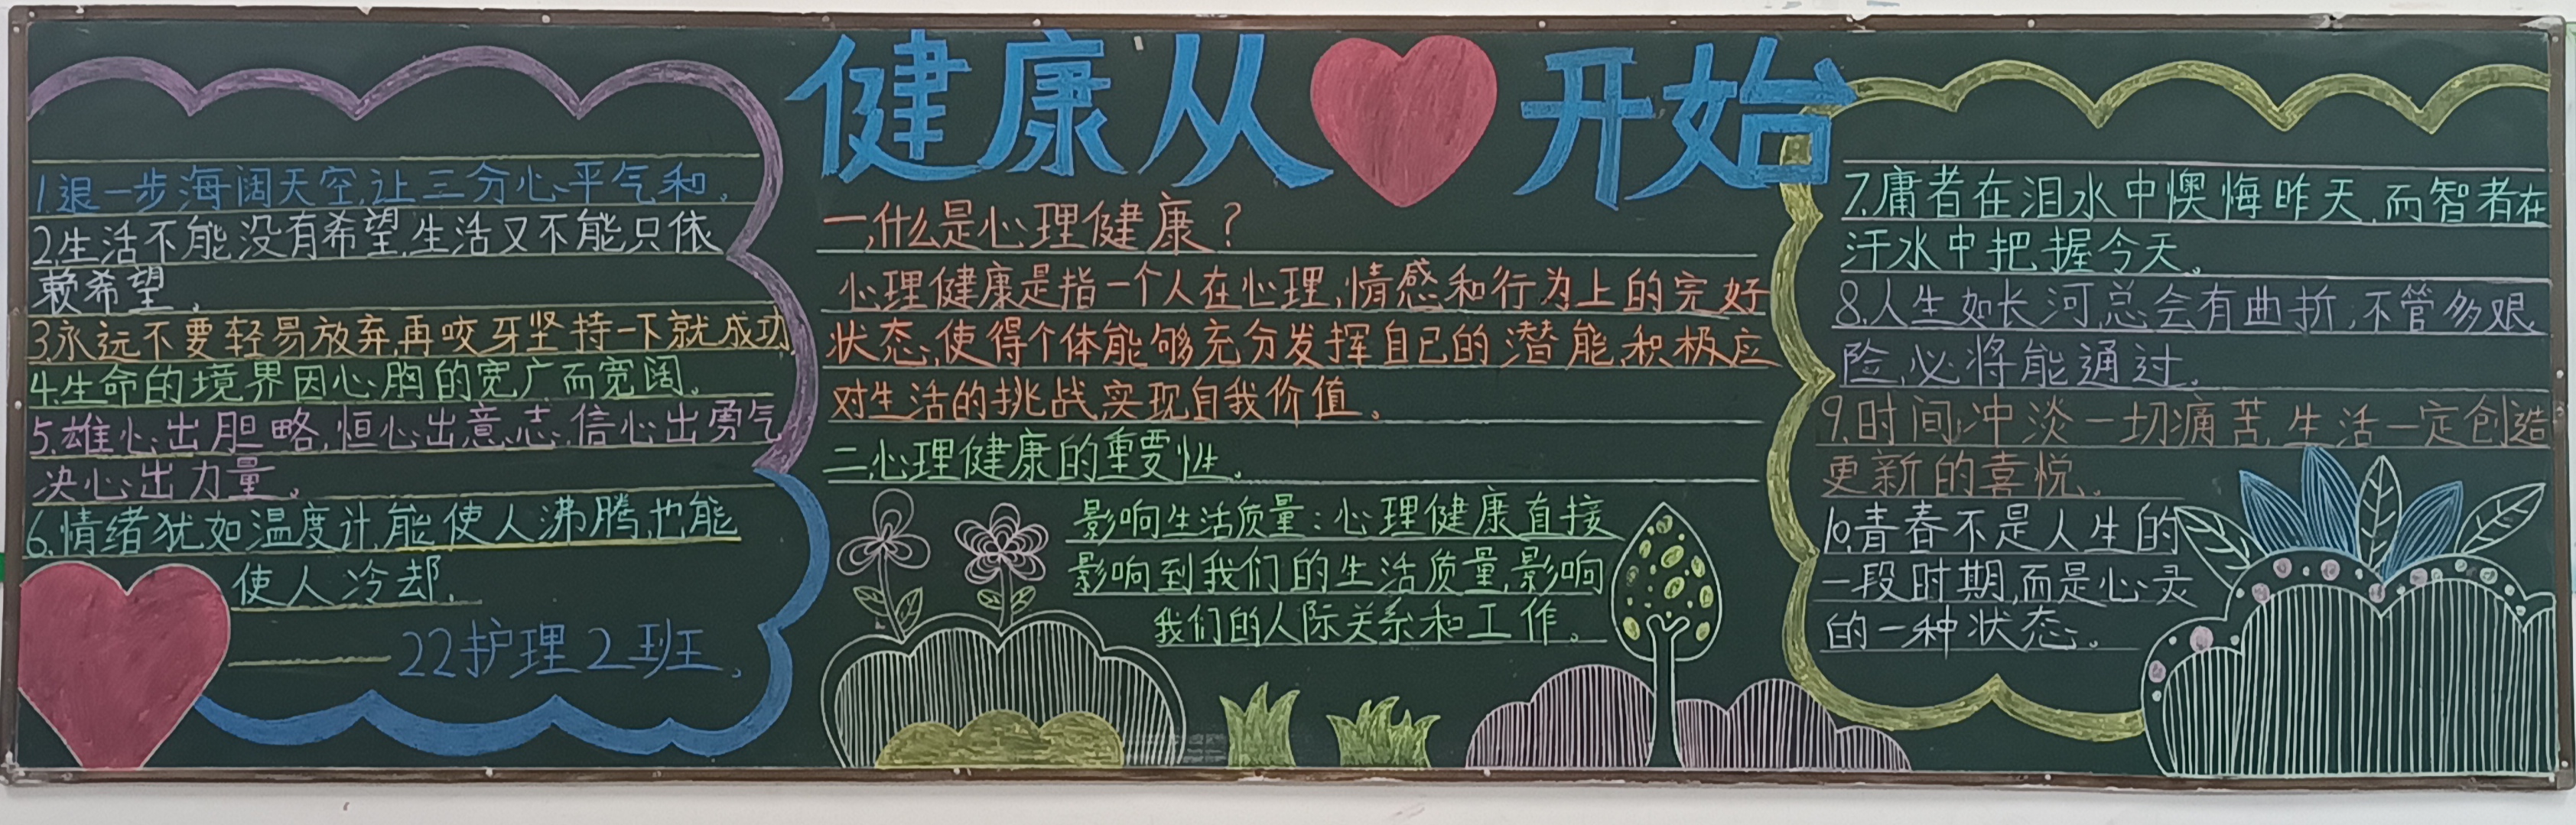 健康从❤开始
1.退一步海阔天空,让三分心平气和。
2.生活不能没有希望,生活又不能只依
赖希望。
3.永远不要轻易放弃,再咬牙坚持一下就成功
4.生命的境界因心胸的宽广而宽阔。
5.雄心出胆略,恒心出意志,信心出勇气
决心出力量。
6.情绪犹如温度计,能使人沸腾,也能
使人冷却.
——22护理2班、
一,什么是心理健康?
心理健康是指一个人在心理,情感和行为上的完好
状态,使得个体能够充分发挥自己的潜能,积极应
对生活的挑战,实现自我价值。
二,心理健康的重要性。
影响生活质量:心理健康直接
影响到我们的生活质量,影响
我们的人际关系和工作。
7.庸者在泪水中懊悔昨天,而智者在
汗水中把握今天。
8.人生如长河,总会有曲折,不管多艰
险,必将能通过。
9.时间冲淡一切痛苦,生活一定创造
更新的喜悦。
10.青春不是人生的
一段时期,而是心灵
的一种状态。